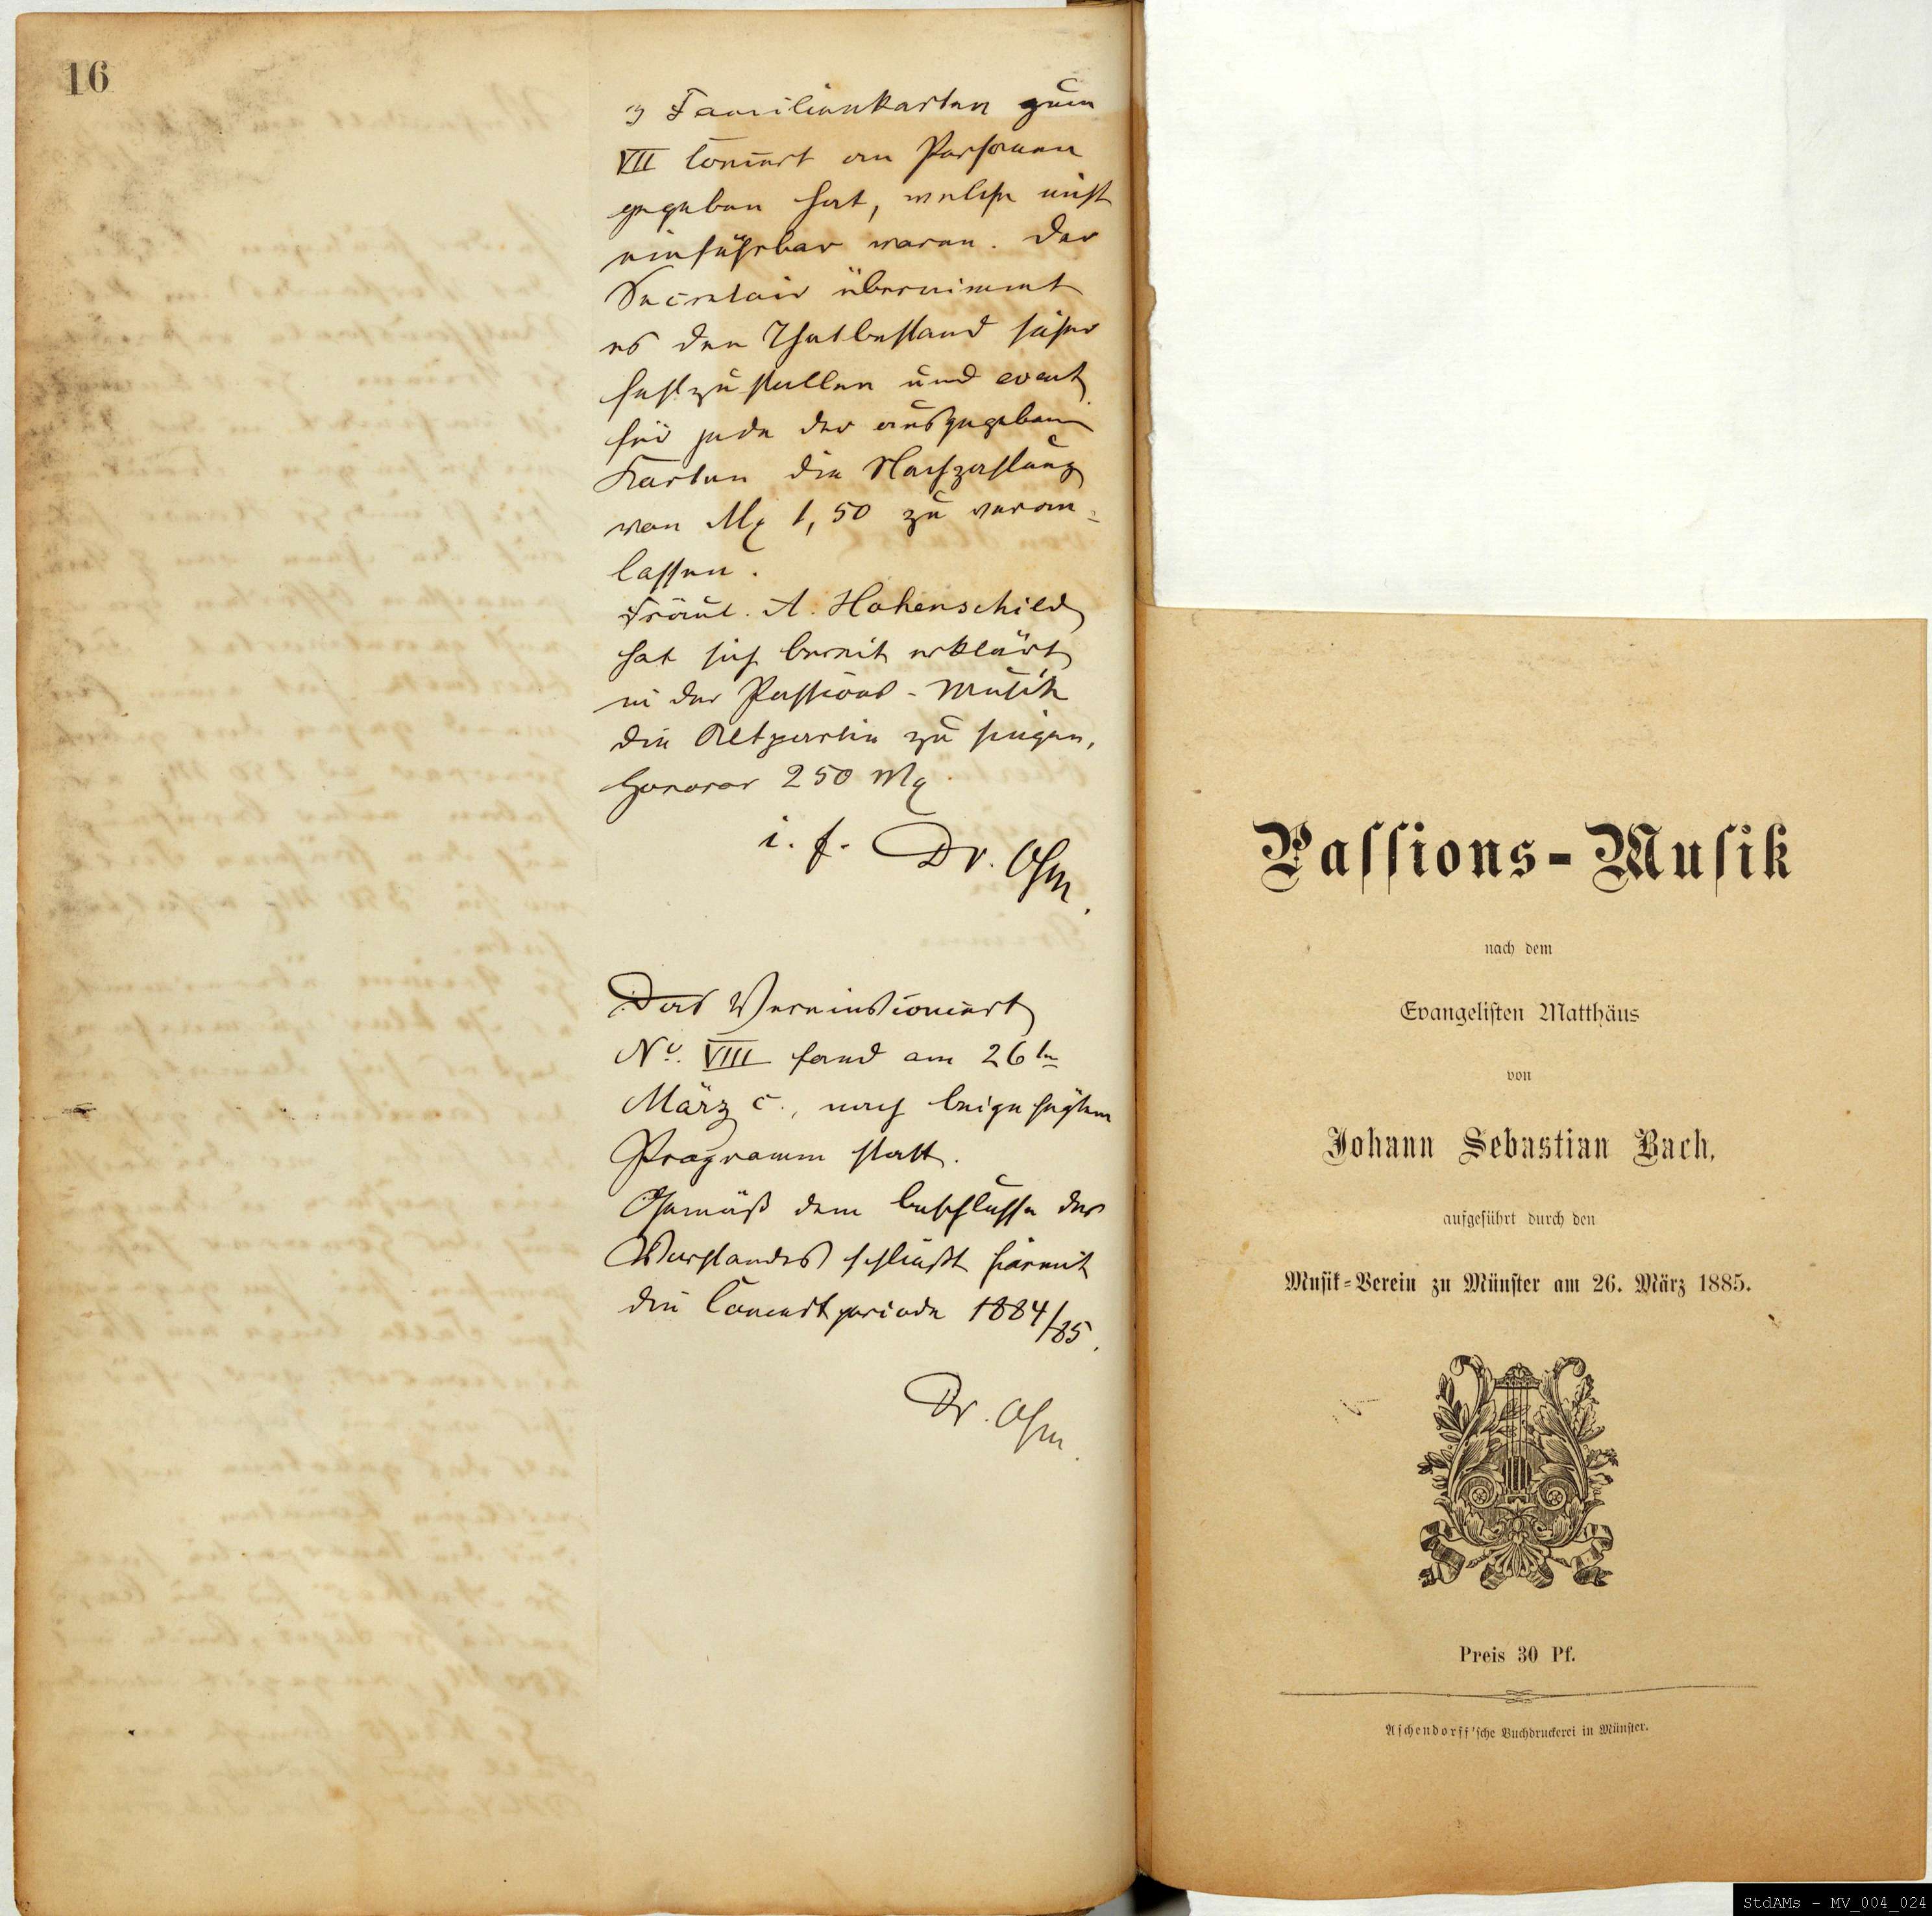 16
3 Familienkarten zum
VII Concert an Personen
gegeben hat, welche nicht
einführbar waren. Der
Secretair übernimmt
es den Thatbestand sicher
festzustellen und event.
für jede der ausgegebenen
Karten die Nachzahlung
von Mk 1,50 zu veran=
lassen.
Fräul. A. Hohenschild
hat sich bereit erklärt
in der Passions-Musik
die Altpartie zu singen,
Honorar 250 Mk.
i. f. Dr. Ohm.
Das Vereinsconcert
No. VIII fand am 26ten
März c., nach beigefügtem
Programm statt.
Gemäß dem Beschlusse des
Vorstandes schließt hiermit
die Concertperiode 1884/85.
Dr. Ohm.
Passions-Musik
nach dem
Evangelisten Matthäus
von
Johann Sebastian Bach,
aufgeführt durch den
Musik-Verein zu Münster am 26. März 1885.
Preis 30 Pf.
Aschendorff'sche Buchdruckerei in Münster.
StdAMs - MV_004_024